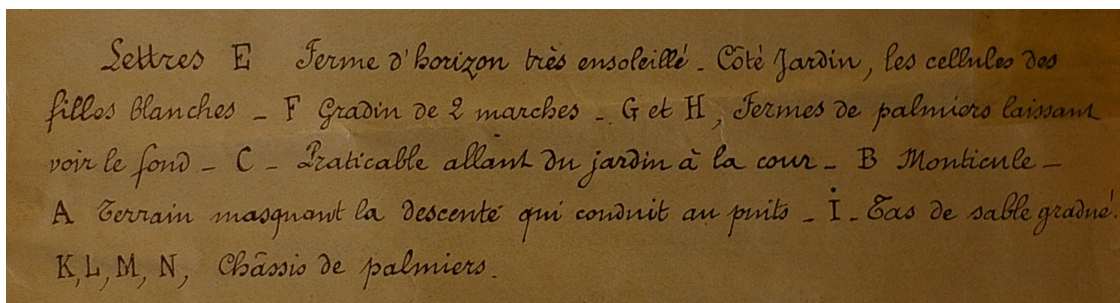 Lettres E Ferme d'horizon très ensoleillé - Côté Jardin, les cellules des
filles blanches - F Gradin de 2 marches - G et H, Fermes de palmiers laissant
voir le fond - C - Praticable allant du jardin à la cour - B Monticule -
A Terrain masquant la descente qui conduit au puits - I - Tas de sable gradué.
K, L, M, N, Châssis de palmiers.